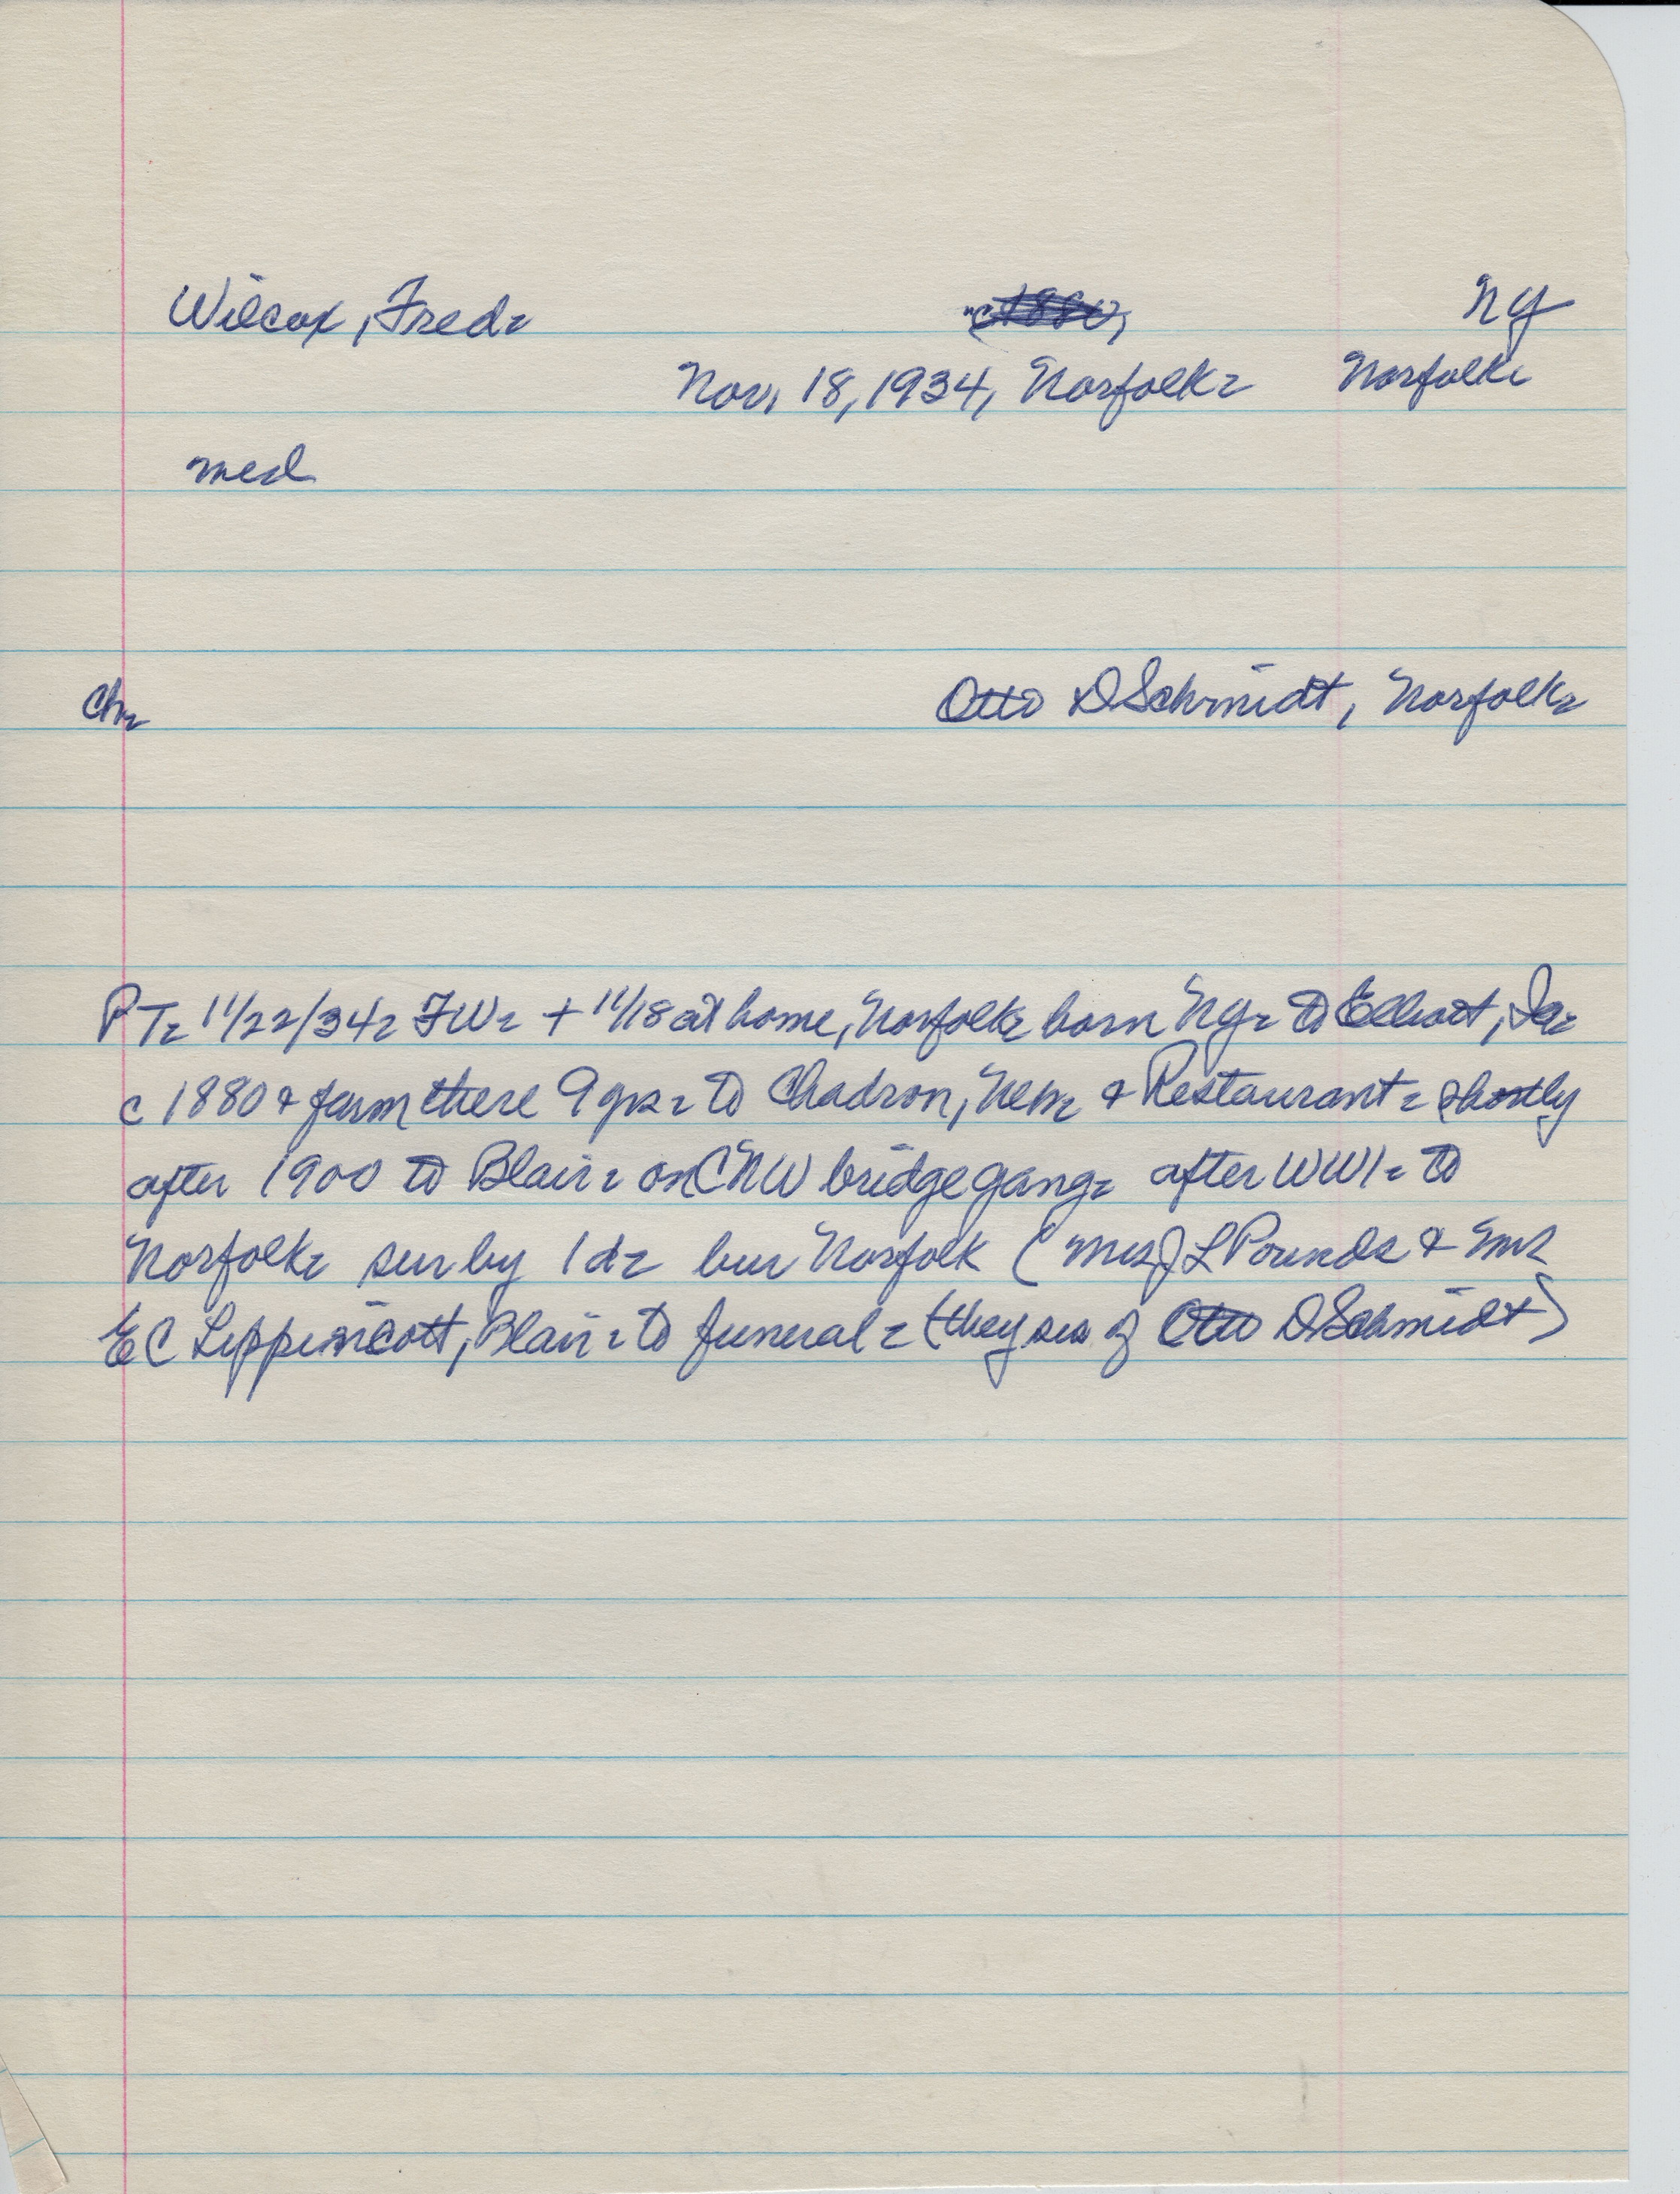 Wilcox, Fred. NY
Nov. 18, 1934, Norfolk. Norfolk
med
Ch. Otto D Schmidt, Norfolk.
PT. 11/22/34. FW. + 11/18 at home, Norfolk. born NY. to Elliott, Ia.
c 1880 & farm there 9 yrs. to Chadron, Nem. & Restaurant. shortly
after 1900 to Blair. on CNW bridge gang. after WW1. to
Norfolk. sur by 1 d. bur Norfolk (Mrs J L Pounds & Mrs
E C Lippincott, Blair. to funeral. (they sis of Otto D Schmidt)